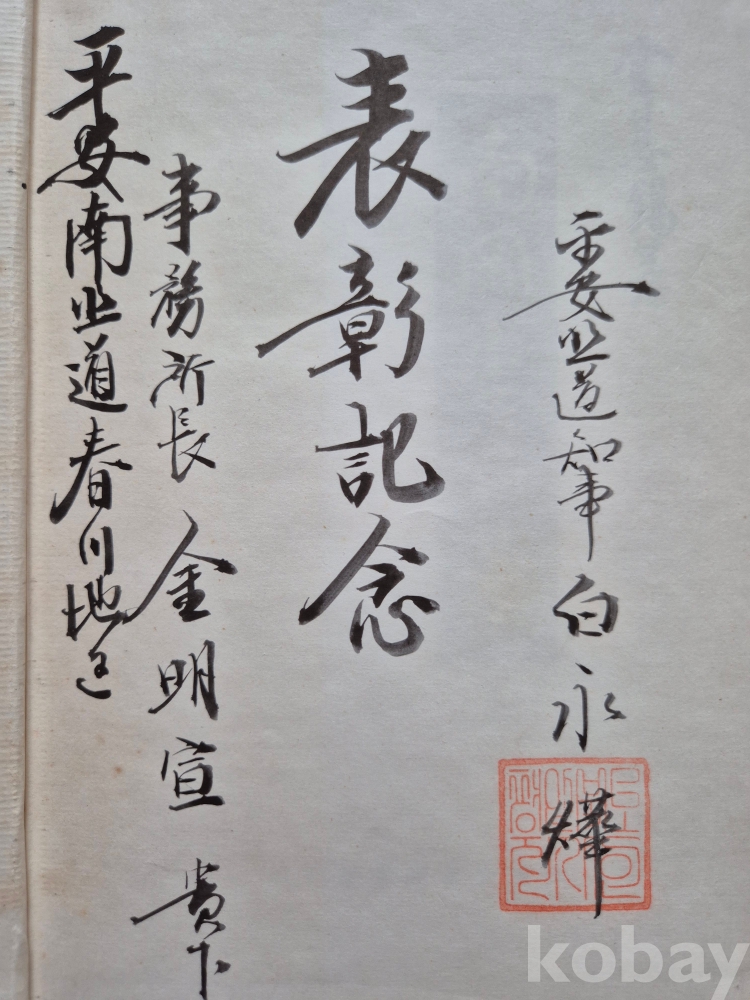 平安南北道春川地区
事務所長 金明宣 貴下
表彰記念
平安北道知事 白永燁
kobay